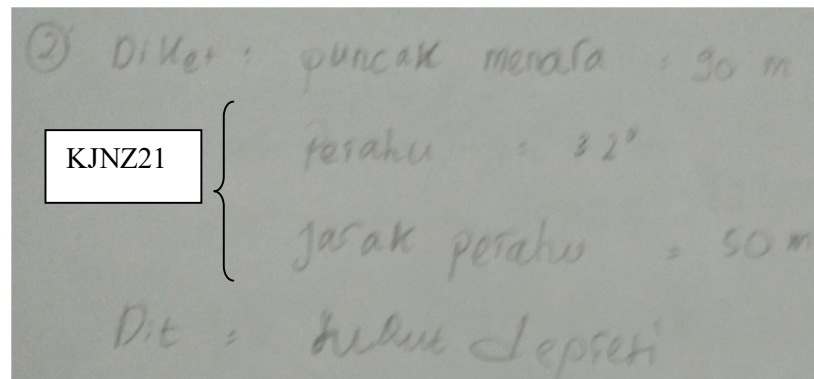 ② Diket : puncak menara = 90 m
KJNZ21
perahu : 32°
Jarak perahu = 50 m
Dit = Sudut depresi